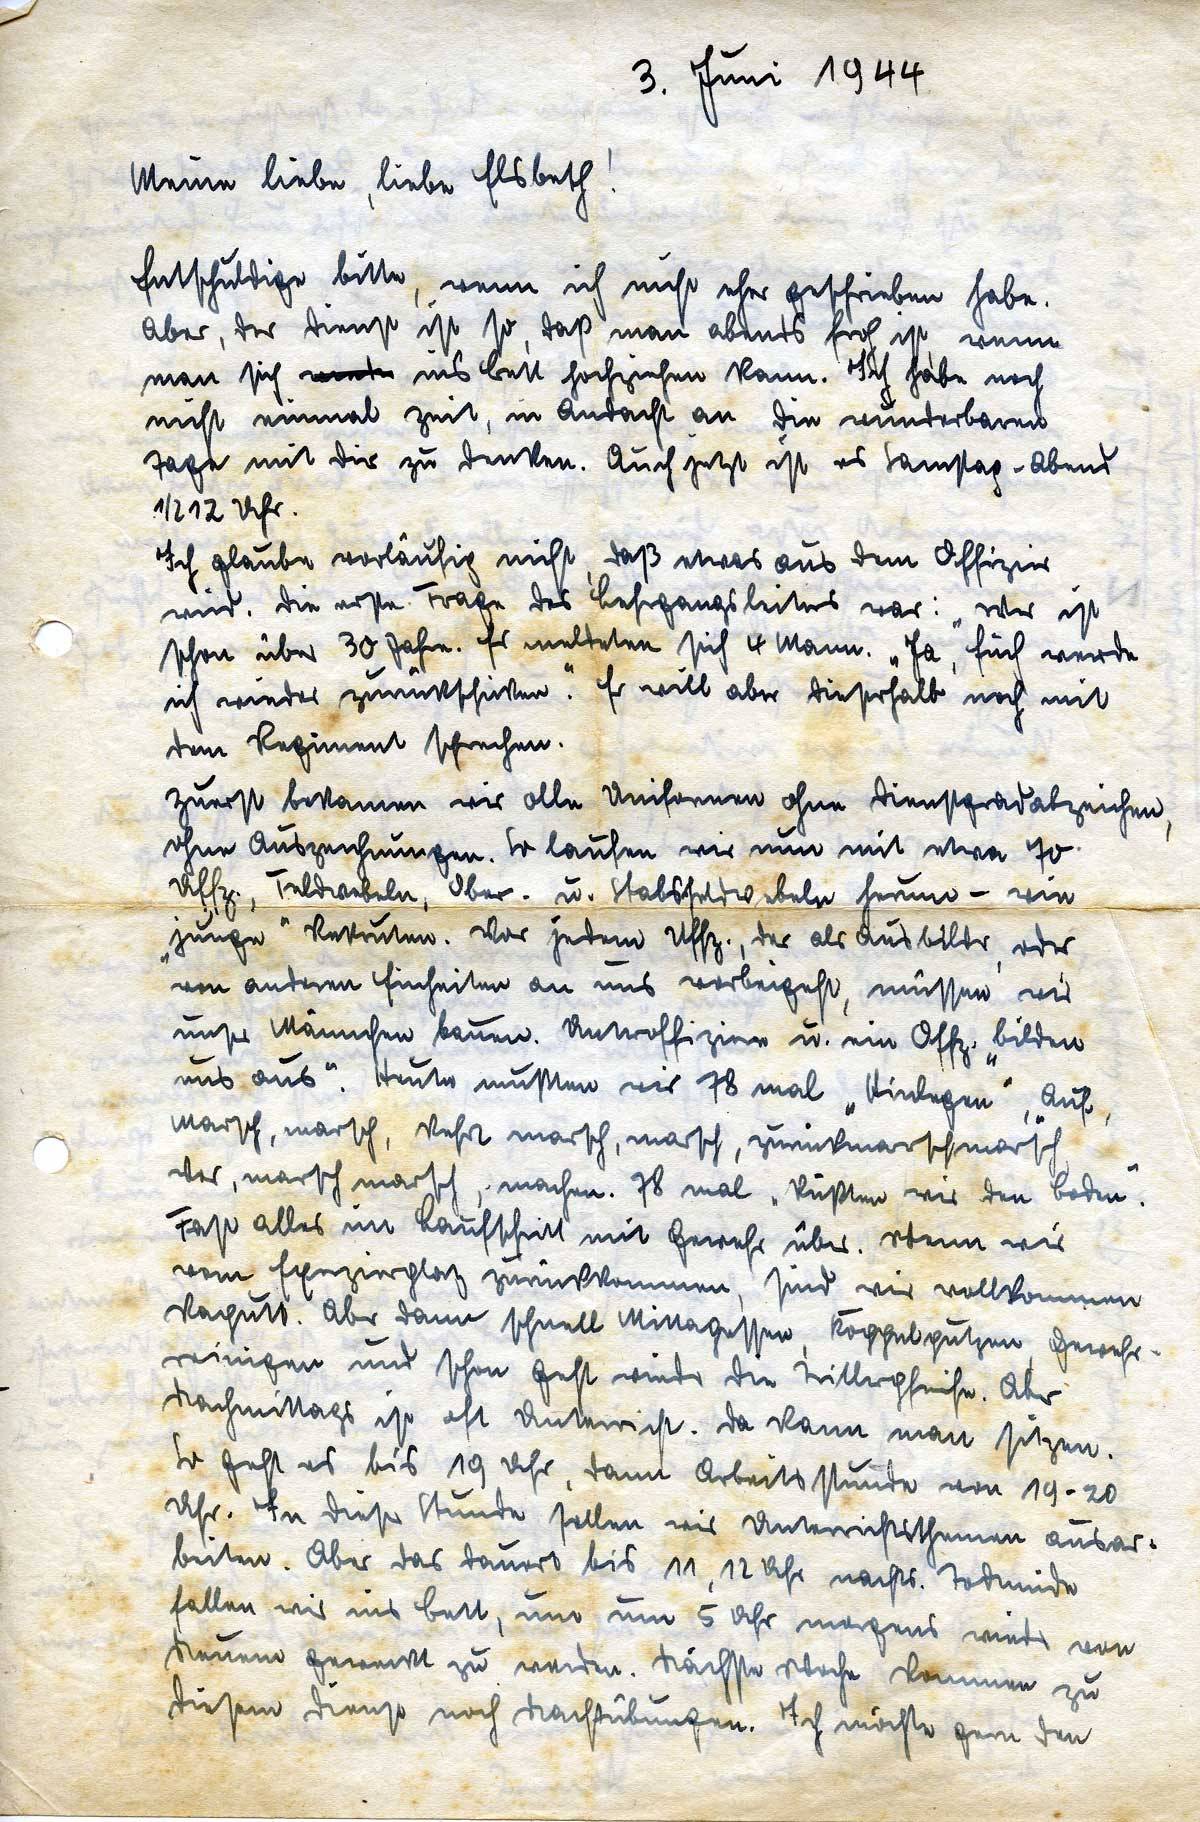 3. Juni 1944
Meine liebe, liebe Elsbeth!
Entschuldige bitte, wenn ich nicht eher geschrieben habe.
Aber, der Dienst ist so, daß man abends froh ist wenn
man sich ins Bett hochziehen kann. Ich habe noch
nicht einmal Zeit, in Andacht an die wunderbaren
Tage mit Dir zu denken. Auch jetzt ist es Samstag-Abend
1/2 12 Uhr.
Ich glaube vorläufig nicht, daß etwas aus dem Offizier
wird. Die erste Frage des Lehrgangsleiters war: „Wer ist
schon über 30 Jahre. Es meldeten sich 4 Mann. „Ja, Euch werde
ich wieder zurückschicken“. Er will aber dieserhalb noch mit
dem Regiment sprechen.
Zuerst bekamen wir olle Uniformen ohne Dienstgradabzeichen,
ohne Auszeichnungen. So laufen wir nun mit etwa 70
Uffz., Feldwebeln, Ober- u. Stabsfeldwebeln herum – wie
„junge“ Rekruten. Vor jedem Uffz., der als Ausbilder, oder
von anderen Einheiten an uns vorbeigeht, müssen wir
unser Männchen bauen. Unteroffiziere u. ein Offz. „bilden
uns aus“. Heute mußten wir 78 mal „Hinlegen“, „Auf,
Marsch, marsch, kehrt marsch, marsch, zurückmarschmarsch
Vor, marsch marsch, machen. 78 mal „küßten wir den Boden“.
Fast alles im Laufschritt mit Gewehr über. Wenn wir
vom Exerzierplatz zurückkommen, sind wir vollkommen
kaputt. Aber dann schnell Mittagessen, Koppelputzen, Gewehr-
reinigen und schon geht wieder die Trillerpfeife. Aber
Nachmittags ist oft Unterricht. Da kann man sitzen.
So geht es bis 19 Uhr, dann Arbeitsstunde von 19-20
Uhr. In dieser Stunde sollen wir Unterrichtsthemen ausar-
beiten. Aber das dauert bis 11, 12 Uhr nachts. Todmüde
fallen wir ins Bett, um um 5 Uhr morgens wieder von
Neuem geweckt zu werden. Nächste Woche kommen zu
diesem Dienst noch Nachtübungen. Ich möchte gern den